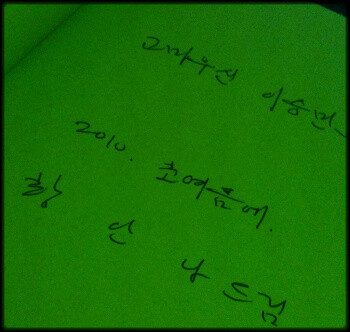 고마우신 이승민
2010. 초여름에.
황 인 나 드림